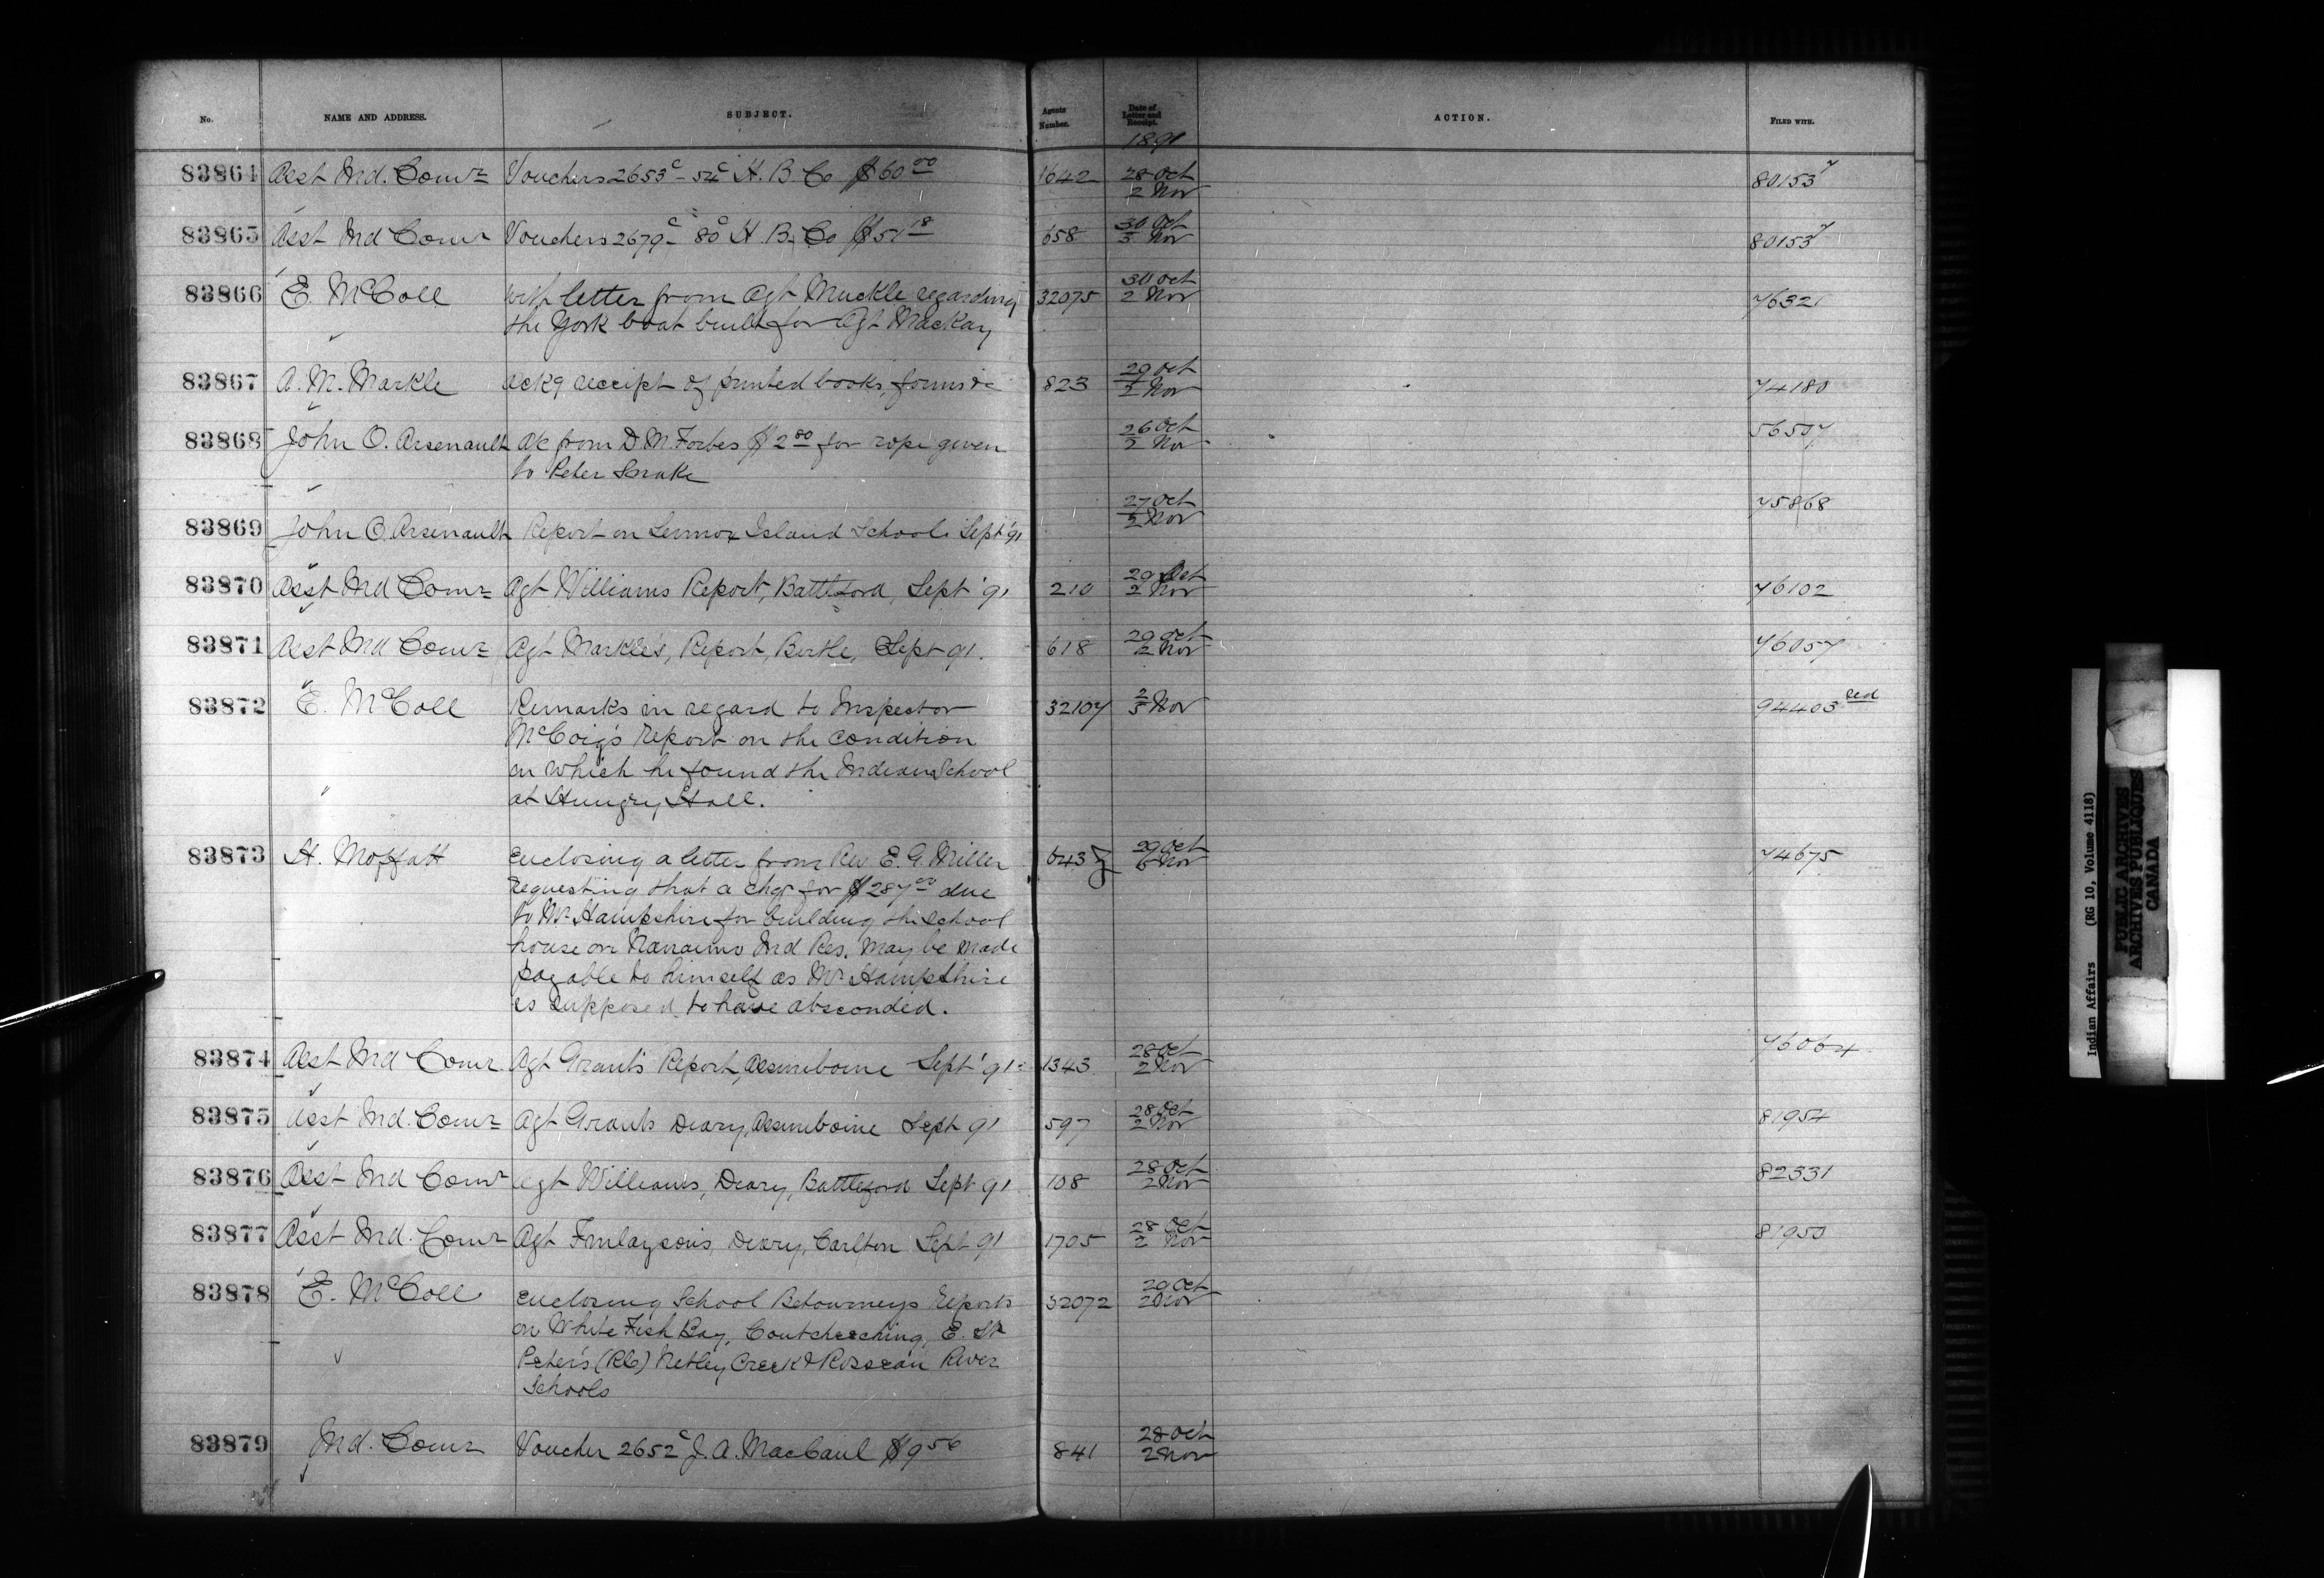 No. NAME AND ADDRESS. SUBJECT. Agents Number. Date of Letter and Receipt. ACTION. FILED WITH.
1891
83864 Asst Ind. Comr Vouchers 2653c - 54c H. B. Co $60 00 1642 28 Oct 80153
2 Nov
83865 Asst Ind Comr Vouchers 2679c 80c H. B. Co $51 18 658 30 Oct 80153
3 Nov
83866 E. McColl with letter from Agt Muckle regarding 32075 30 Oct 76321
the York boat built for Agt Mackay 2 Nov
83867 A. M. Markle ackg receipt of printed books, forms &c 823 29 Oct 74180
2 Nov
83868 John O. Arsenault a/c from D. M. Forbes $2 80 for rope given 26 Oct 56507
to Peter Snake 2 Nov
83869 John O. Arsenault Report on Lennox Island School Sept '91 27 Oct 75868
2 Nov
83870 Asst Ind Comr Agt Williams Report, Battleford, Sept '91 210 29 Oct 76102
2 Nov
83871 Asst Ind Comr Agt Markle's, Report, Birtle, Sept 91. 618 29 Oct 76057
2 Nov
83872 E. McColl Remarks in regard to Inspector 32107 2 Nov 94403
McCoig's report on the condition 3
in which he found the Indian School
at Hungry Hall.
83873 H. Moffatt Enclosing a letter from Rev E. G. Miller 643 29 Oct 74675
requesting that a chq for $287 00 due 6 Nov
to Mr Hampshire for building the school
house on Nanaimo Ind Res. may be made
payable to himself as Mr Hampshire
is supposed to have absconded.
83874 Asst Ind Comr Agt Grant's Report, Assineboine Sept '91 1343 28 Oct 76064
2 Nov
83875 Asst Ind. Comr Agt Grants Diary, Assineboine Sept 91 597 28 Oct 81954
2 Nov
83876 Asst Ind Comr Agt Williams, Diary, Battleford Sept 91 108 28 Oct 82331
2 Nov
83877 Asst Ind. Comr Agt Finlaysons, Diary, Carlton Sept 91 1705 28 Oct 81950
2 Nov
83878 E. McColl enclosing School Reports 32072 29 Oct
on White Fish Bay, Coutcheeching, E. St 2 Nov
Peter's (RC) Netley Creek & Roseau River
Schools
83879 Ind. Comr Voucher 2652c J. A. MacCaul $9 56 841 28 Oct
2 Nov
Indian Affairs (RG 10, Volume 4118)
PUBLIC ARCHIVES
ARCHIVES PUBLIQUES
CANADA